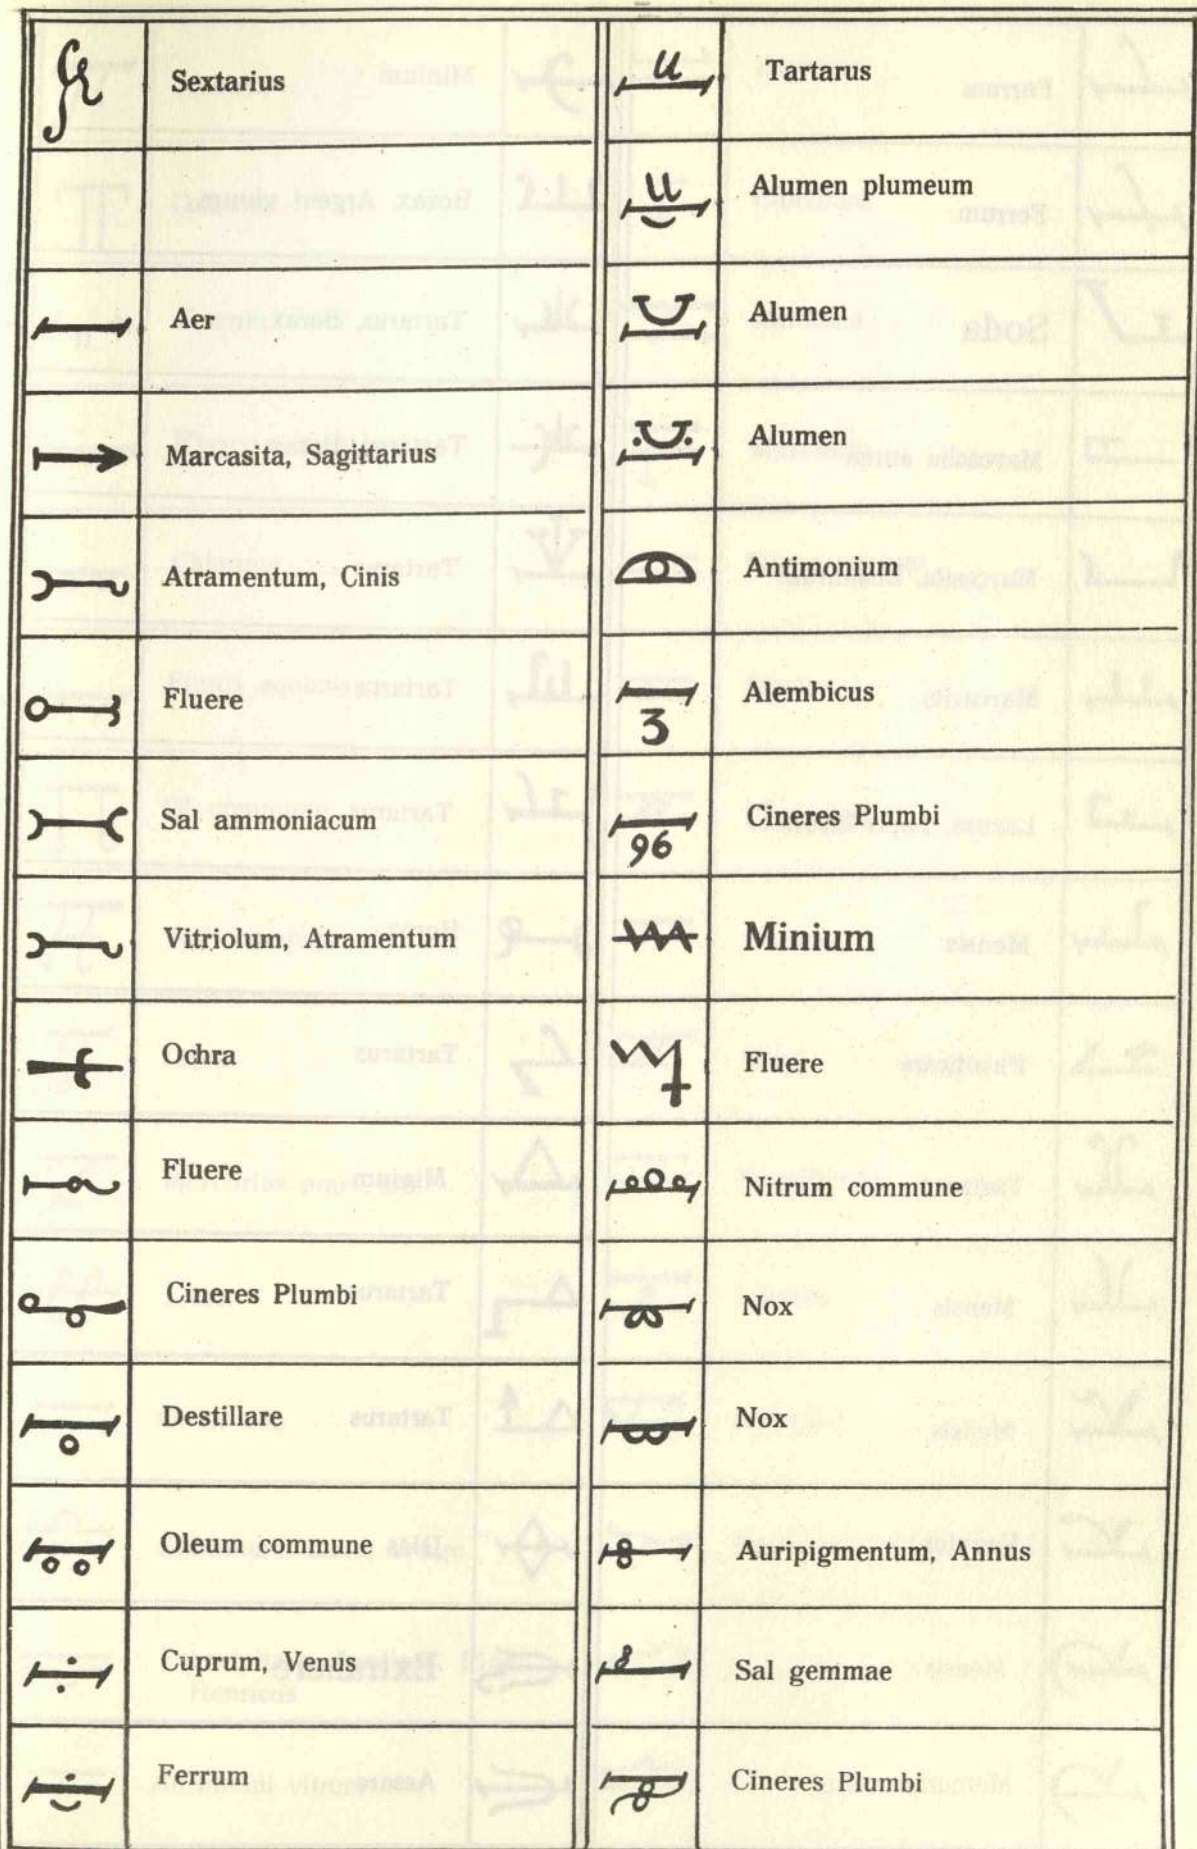 Sextarius
Aer
Marcasita, Sagittarius
Atramentum, Cinis
Fluere
Sal ammoniacum
Vitriolum, Atramentum
Ochra
Fluere
Cineres Plumbi
Destillare
Oleum commune
Cuprum, Venus
Ferrum
Tartarus
Alumen plumeum
Alumen
Alumen
Antimonium
Alembicus
3
Cineres Plumbi
96
Minium
Fluere
Nitrum commune
Nox
Nox
Auripigmentum, Annus
Sal gemmae
Cineres Plumbi